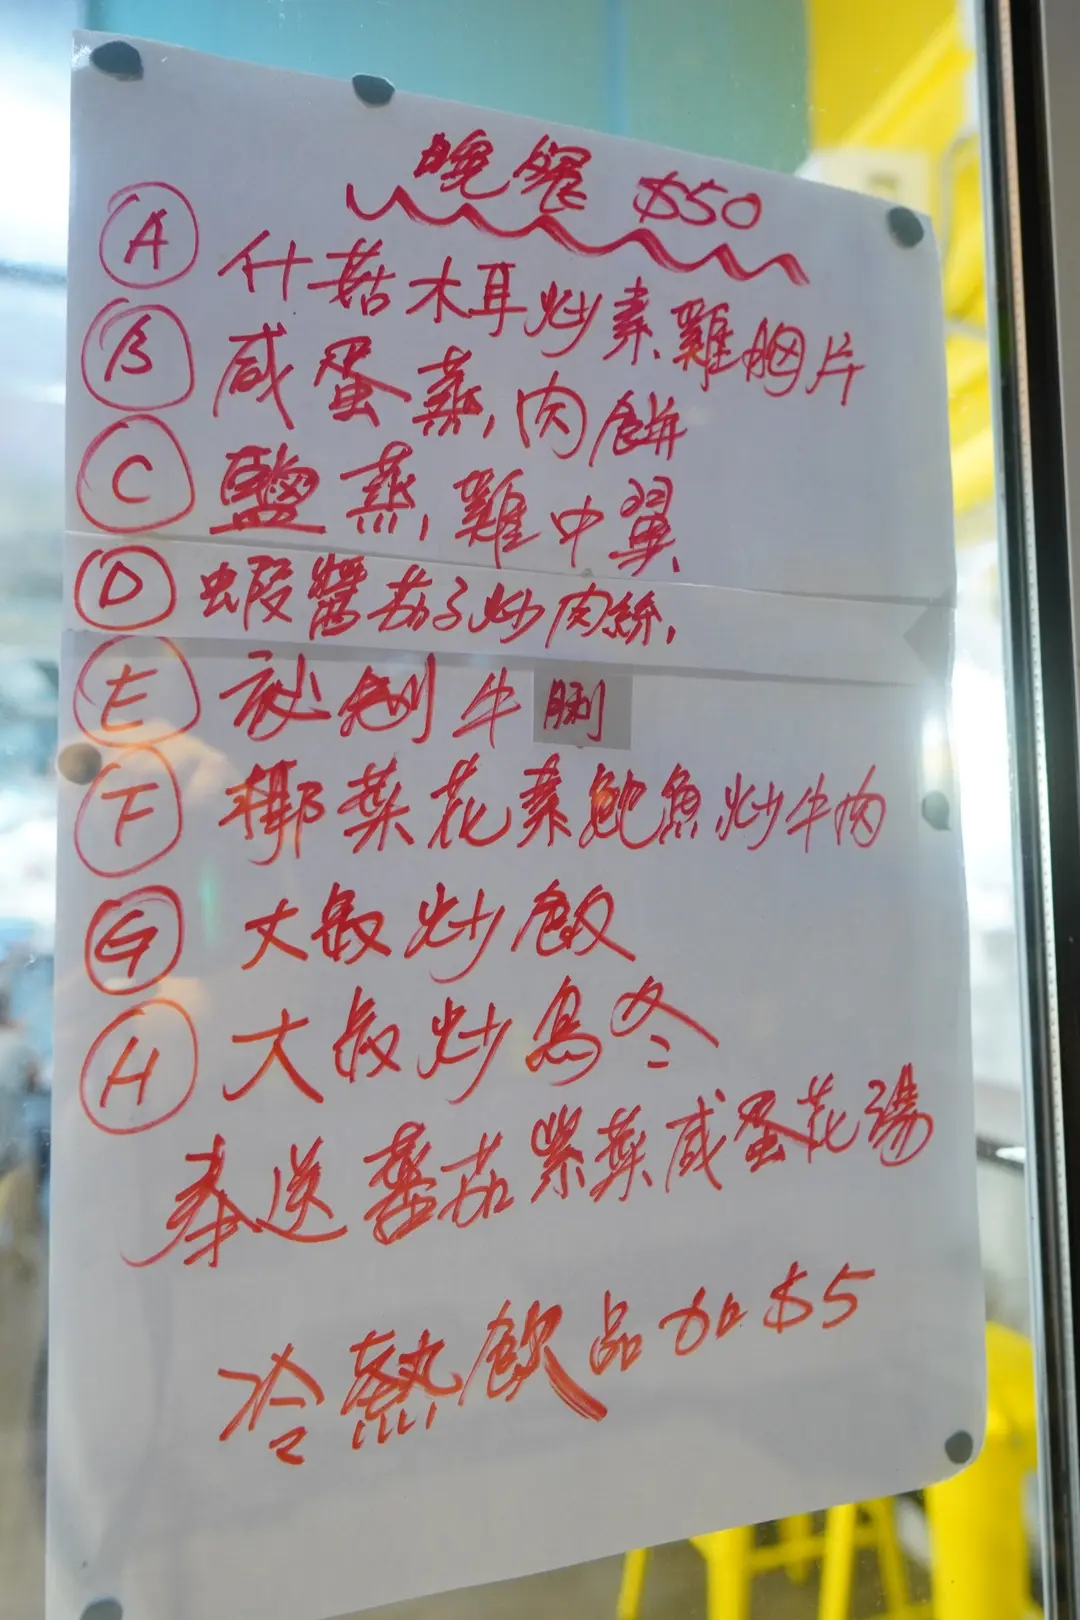 晚餐 $50
A 什菇木耳炒素雞胸片
B 咸蛋蒸肉餅
C 鹽蒸雞中翼
D 蝦醬茄子炒肉絲
E 秘制牛脷
F 椰菜花素鮑魚炒牛肉
G 大殺炒飯
H 大殺炒烏冬
奉送蕃茄紫菜咸蛋花湯
冷熱飲品加$5